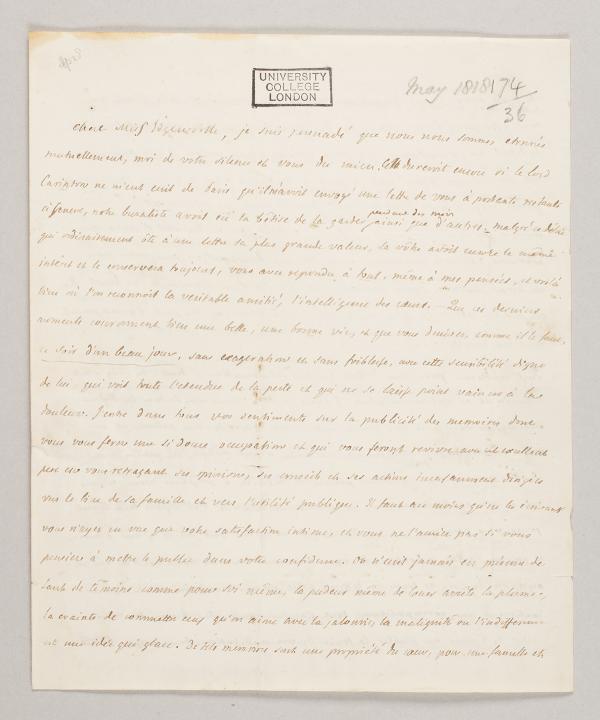 UNIVERSITY
COLLEGE
LONDON
May 1818
174
36
chere Miss Edgeworth, je suis persuadé que nous nous sommes etonnés
mutuellement, moi de votre silence et vous du mien. Cette durerait encore si le lord
Carington ne m'eut ecrit de Paris qu'il m'avoit envoyé une lettre de vous à
à Geneve, notre avoit eu la bétise de la garder pendant des mois ainsi que d'autres. malgré ce délai
qui ordinairement ôte à une lettre sa plus grande valeur, la vôtre avoit encore le même
intérêt et le conservera toujours, vous avez repondu à tout, même à mes pensées, et voilà
bien où l'on reconnoit la veritable amitié, l'intelligence des cœurs. Que ces derniers
moments couronnent bien une belle, une bonne vie, et que vous comme il le faut,
ce soir d'un beau jour, sans exageration et sans foiblesse, avec cette sensibilité digne
de lui qui voit toute l'etendue de la perte et qui ne se laisse point vaincre à la
douleur. J'entre dans tous vos sentiments sur la publicité des memoires dont
vous vous ferez une si douce occupation et qui vous feront revivre avec cet excellent
pere en vous retraçant ses opinions, ses conseils et ses actions incessamment dirigées
vers le bien de sa famille et vers l'utilité publique. Il faut au moins qu'en les ecrivant
vous n'ayez en vue que votre satisfaction intime, et vous ne l'auriez pas si vous
pensiez à mettre le public dans votre confidence. On n'ecrit jamais en présence de
tant de témoins comme pour soi même, la pudeur même de louer arrête la plume,
la crainte de commettre ceux qu'on aime avec la jalousie, la malignité ou l'indifference
est une idée qui glace. De tels memoires sont une propriété du cœur, pour une famille et